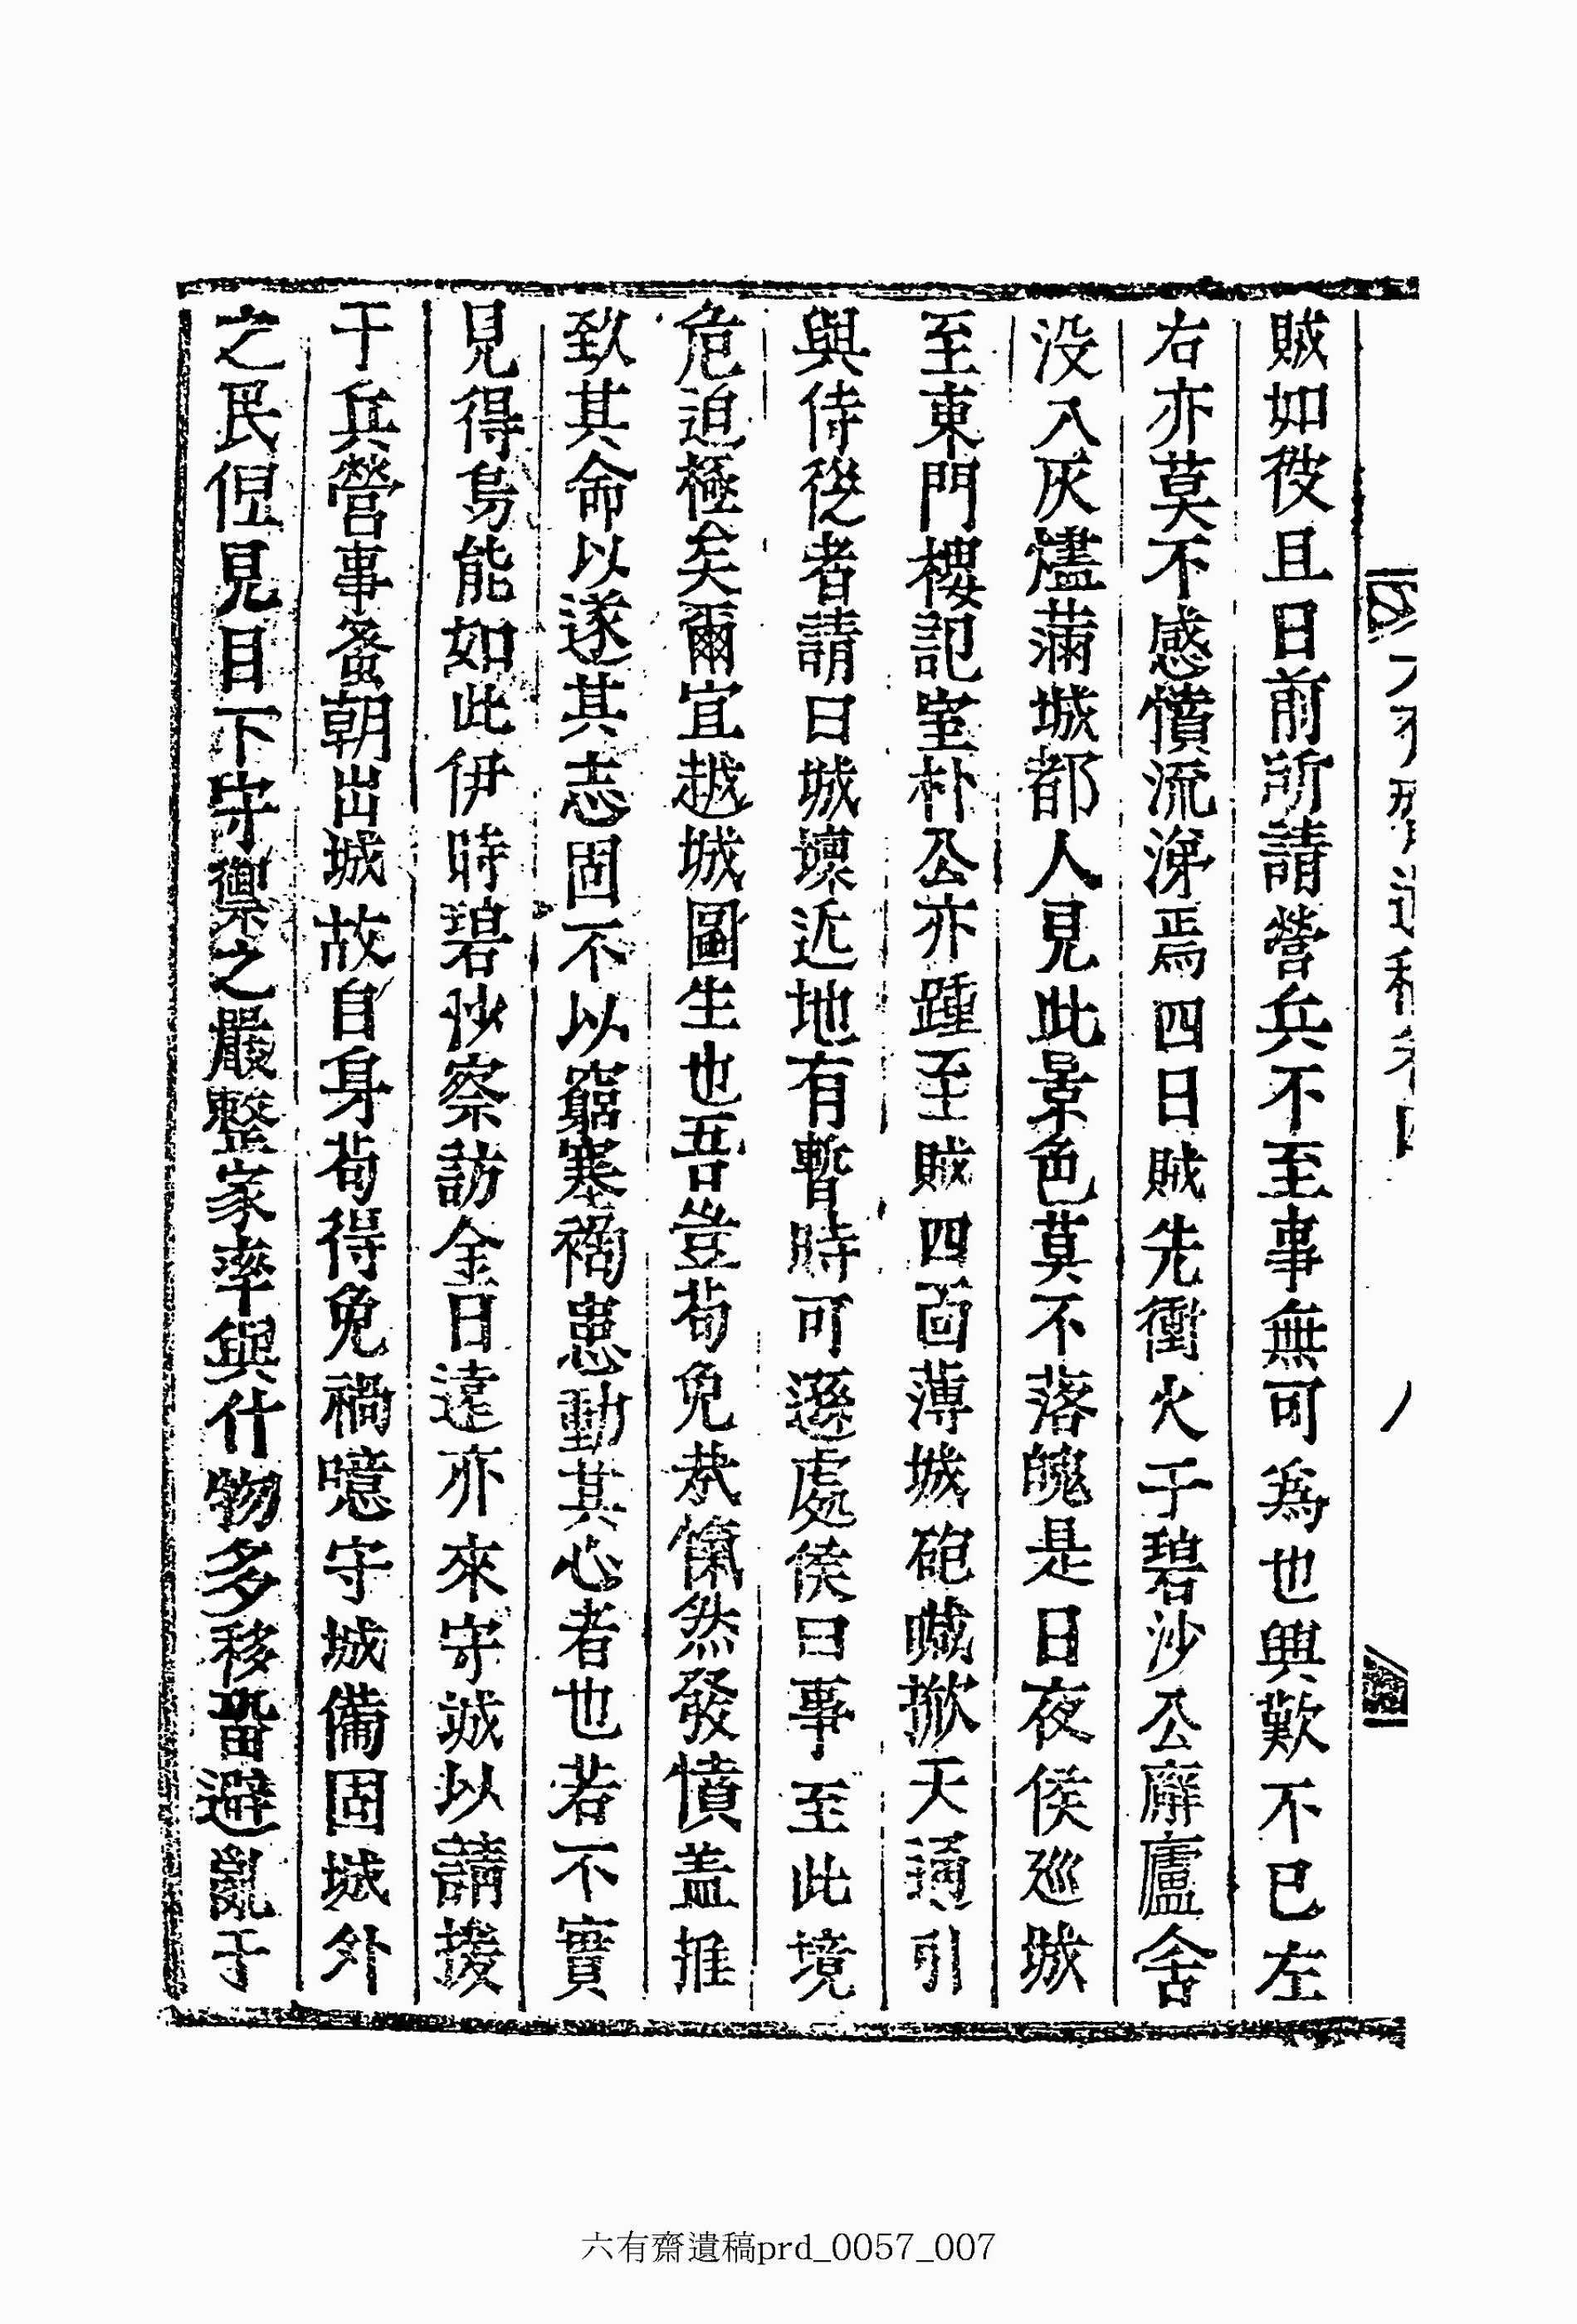 賊如彼且日前所請營兵不至事無可爲也興歎不已左
右亦莫不感憤流涕焉四日賊先衝火于碧沙公廨廬舍
没入灰燼滿城都人見此景色莫不落魄是日夜侯巡城
至東門樓記室朴公亦踵至賊四面薄城砲喊掀天通引
與侍從者請曰城壞近地有暫時可遜處侯曰事至此境
危迫極矣爾宜越城圖生也吾豈苟免㢤慷然發憤盖推
致其命以遂其志固不以窮塞禍患動其心者也若不實
見得烏能如此伊時碧沙察訪金日遠亦來守城以請援
于兵營事蚤朝出城故自身苟得免禍噫守城備固城外
之民但見目下守禦之嚴整家率與什物多移番避亂于
六有齋遺稿卷四
六有齋遺稿prd_0057_007